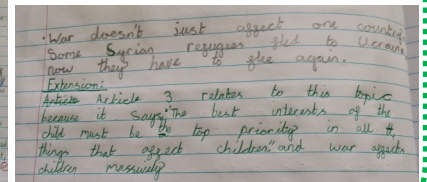 • War doesn't just affect one country.
Some Syrian refugies fled to Ucraine
now they have to flee again.
Extension:
Article Article 3 relates to this topic
because it says, "The best interests of the
child must be the top priority in all
things that affect children." and war affects
children massively